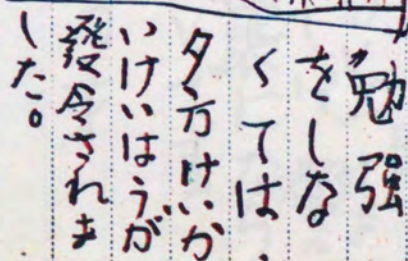 勉強
をしな
くては、
夕方けいか
いけいほうが
發令されま
した。